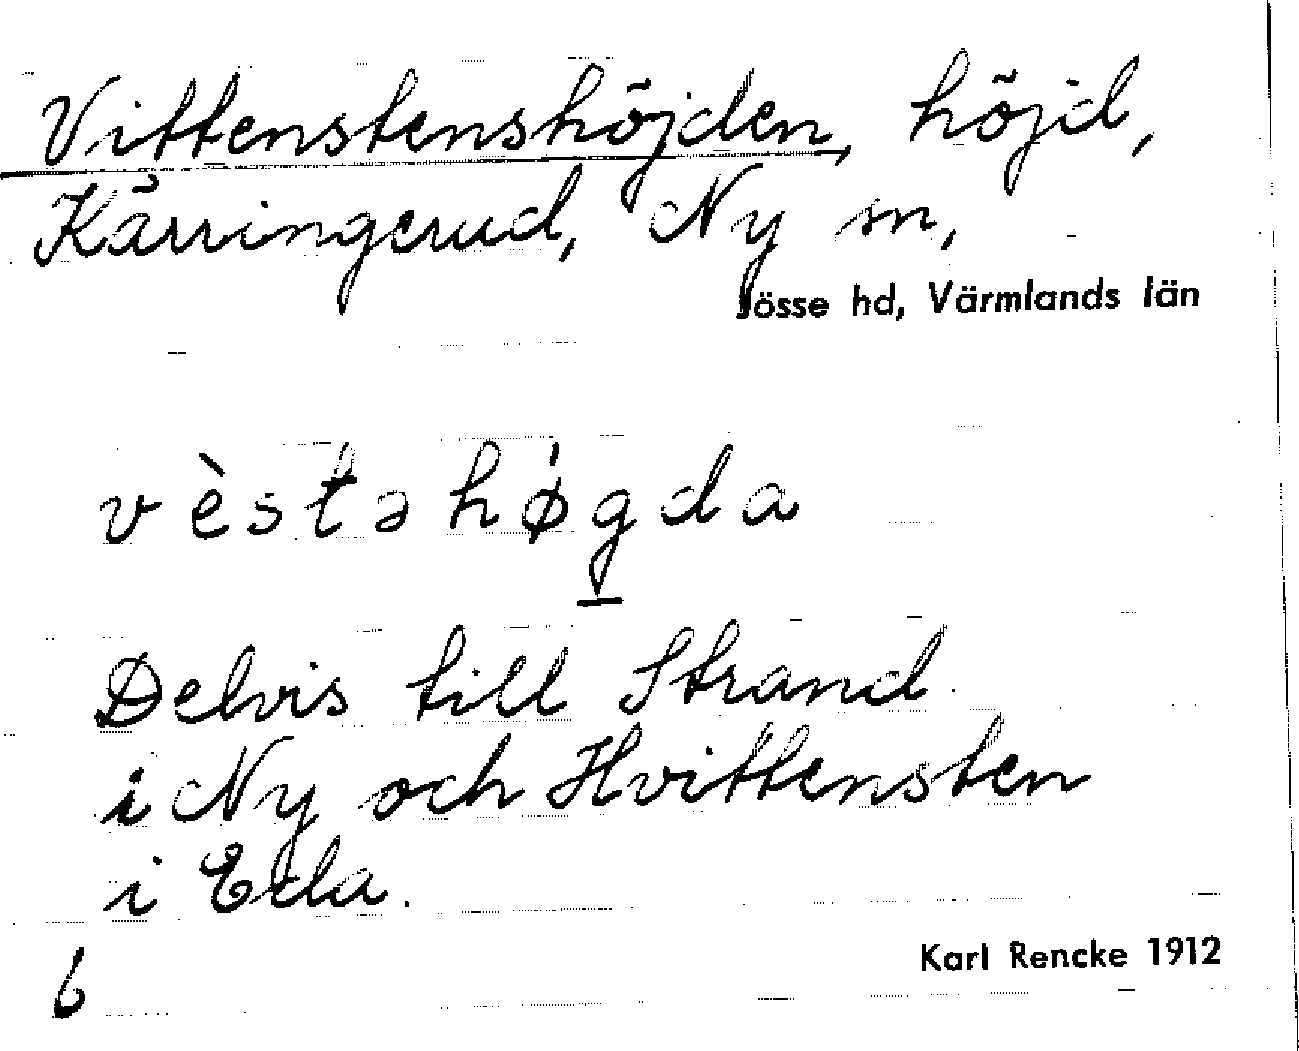 Vittenstenshöjden, höjd,
Kärringerud, Ny sn,
Jösse hd, Värmlands län
vèstəhǿgda
Delvis till Strand
i Ny och Hvittensten
i Eda.
Karl Rencke 1912
6